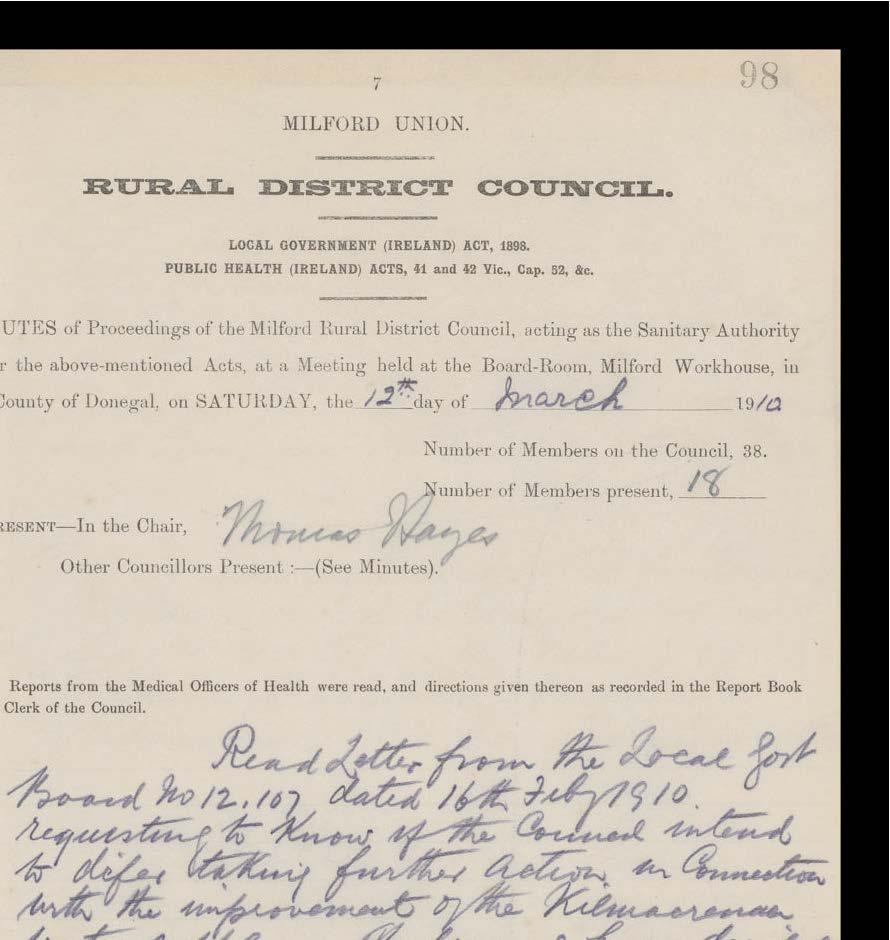 98
7
MILFORD UNION.
RURAL DISTRICT COUNCIL.
LOCAL GOVERNMENT (IRELAND) ACT, 1898.
PUBLIC HEALTH (IRELAND) ACTS, 41 and 42 Vic., Cap. 52, &c.
UTES of Proceedings of the Milford Rural District Council, acting as the Sanitary Authority
r the above-mentioned Acts, at a Meeting held at the Board-Room, Milford Workhouse, in
County of Donegal, on SATURDAY, the 12th day of March 1910
Number of Members on the Council, 38.
Number of Members present, 18
RESENT—In the Chair, Thomas Hayes
Other Councillors Present :—(See Minutes).
Reports from the Medical Officers of Health were read, and directions given thereon as recorded in the Report Book
Clerk of the Council.
Read Letter from the Local Govt
Board No 12,107 dated 16th Feby 1910.
requesting to know if the Council intend
to defer taking further action in Connection
with the improvement of the Kilmacrenan